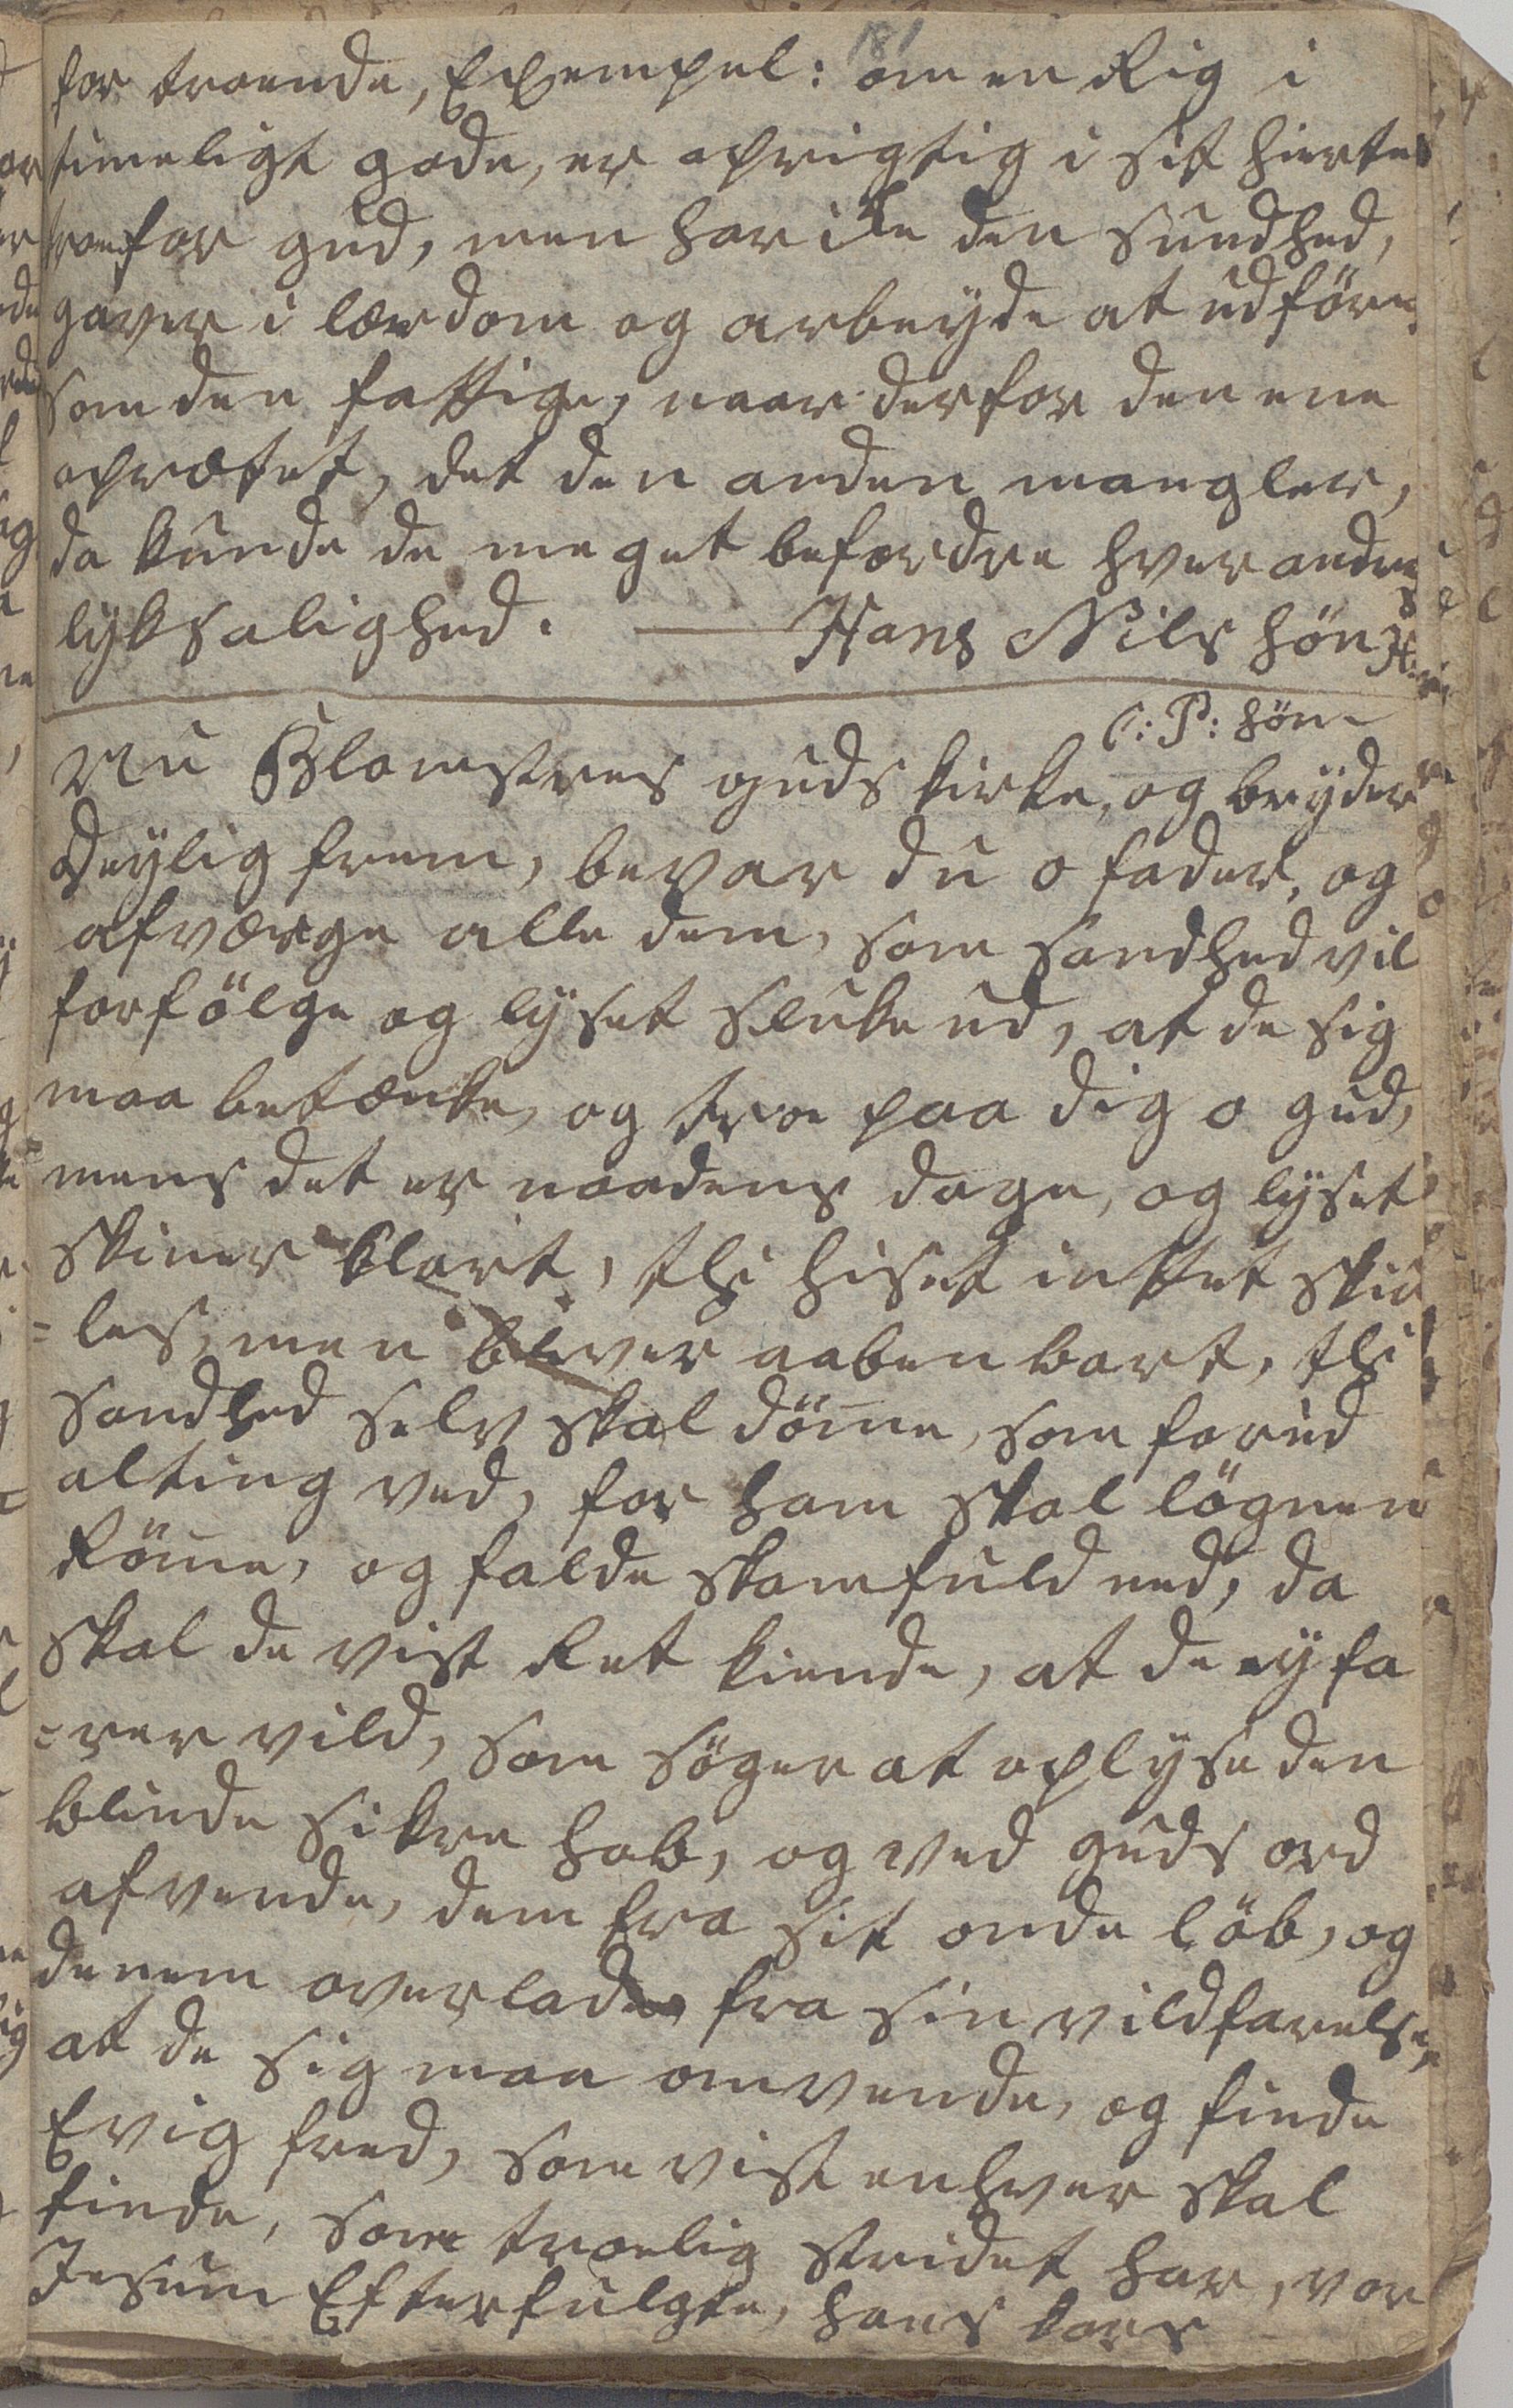 181
for troende, Exempel: om en Rig i
timeligt gode, er oprigtig i sit hierte
som for gud, men har ike den sundhed,
gaver i lærdom og arbeyde at udføre
som den fattige, naar derfor den ene
oprættet, det den anden mangler,
da kunde de meget befordre hverandres
lyksalighed. Hans Nilsøn
C: P: søn
Nu Blomstres guds kirke, og bryder
Deylig frem, bevar du o fader, og
afværge alle dem, som sandhed vil
forfölge og lyset sluke ud, at de sig
maa betænke, og troe paa dig o gud,
mens det er naadens dage, og lyset
skiner klart, thi hiset intet skiu
=les, men bliver aabenbart, thi
sandhed selv skal döme, som forud
alting ved, for ham skal lögnen
Röme, og falde skamfuld ned, da
skal de vist Ret kiende, at de ey fa
=rer vild, som söger at oplyse den
blinde sikre hob, og ved guds ord
afvende, dem fra sit onde löb, og
denem overlade fra sin vildfarelse,
at de sig maa omvende, og finde
Evig fred, som vist enhver skal
finde, som troelig stridet har, vor
Jesum Efterfulgte, hans kors